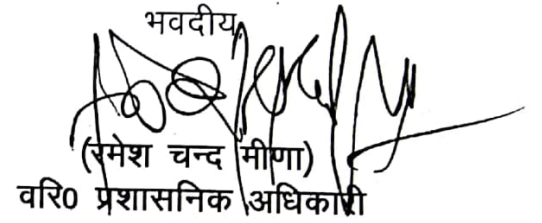 भवदीय,
(रमेश चन्द मीणा)
वरि0 प्रशासनिक अधिकारी